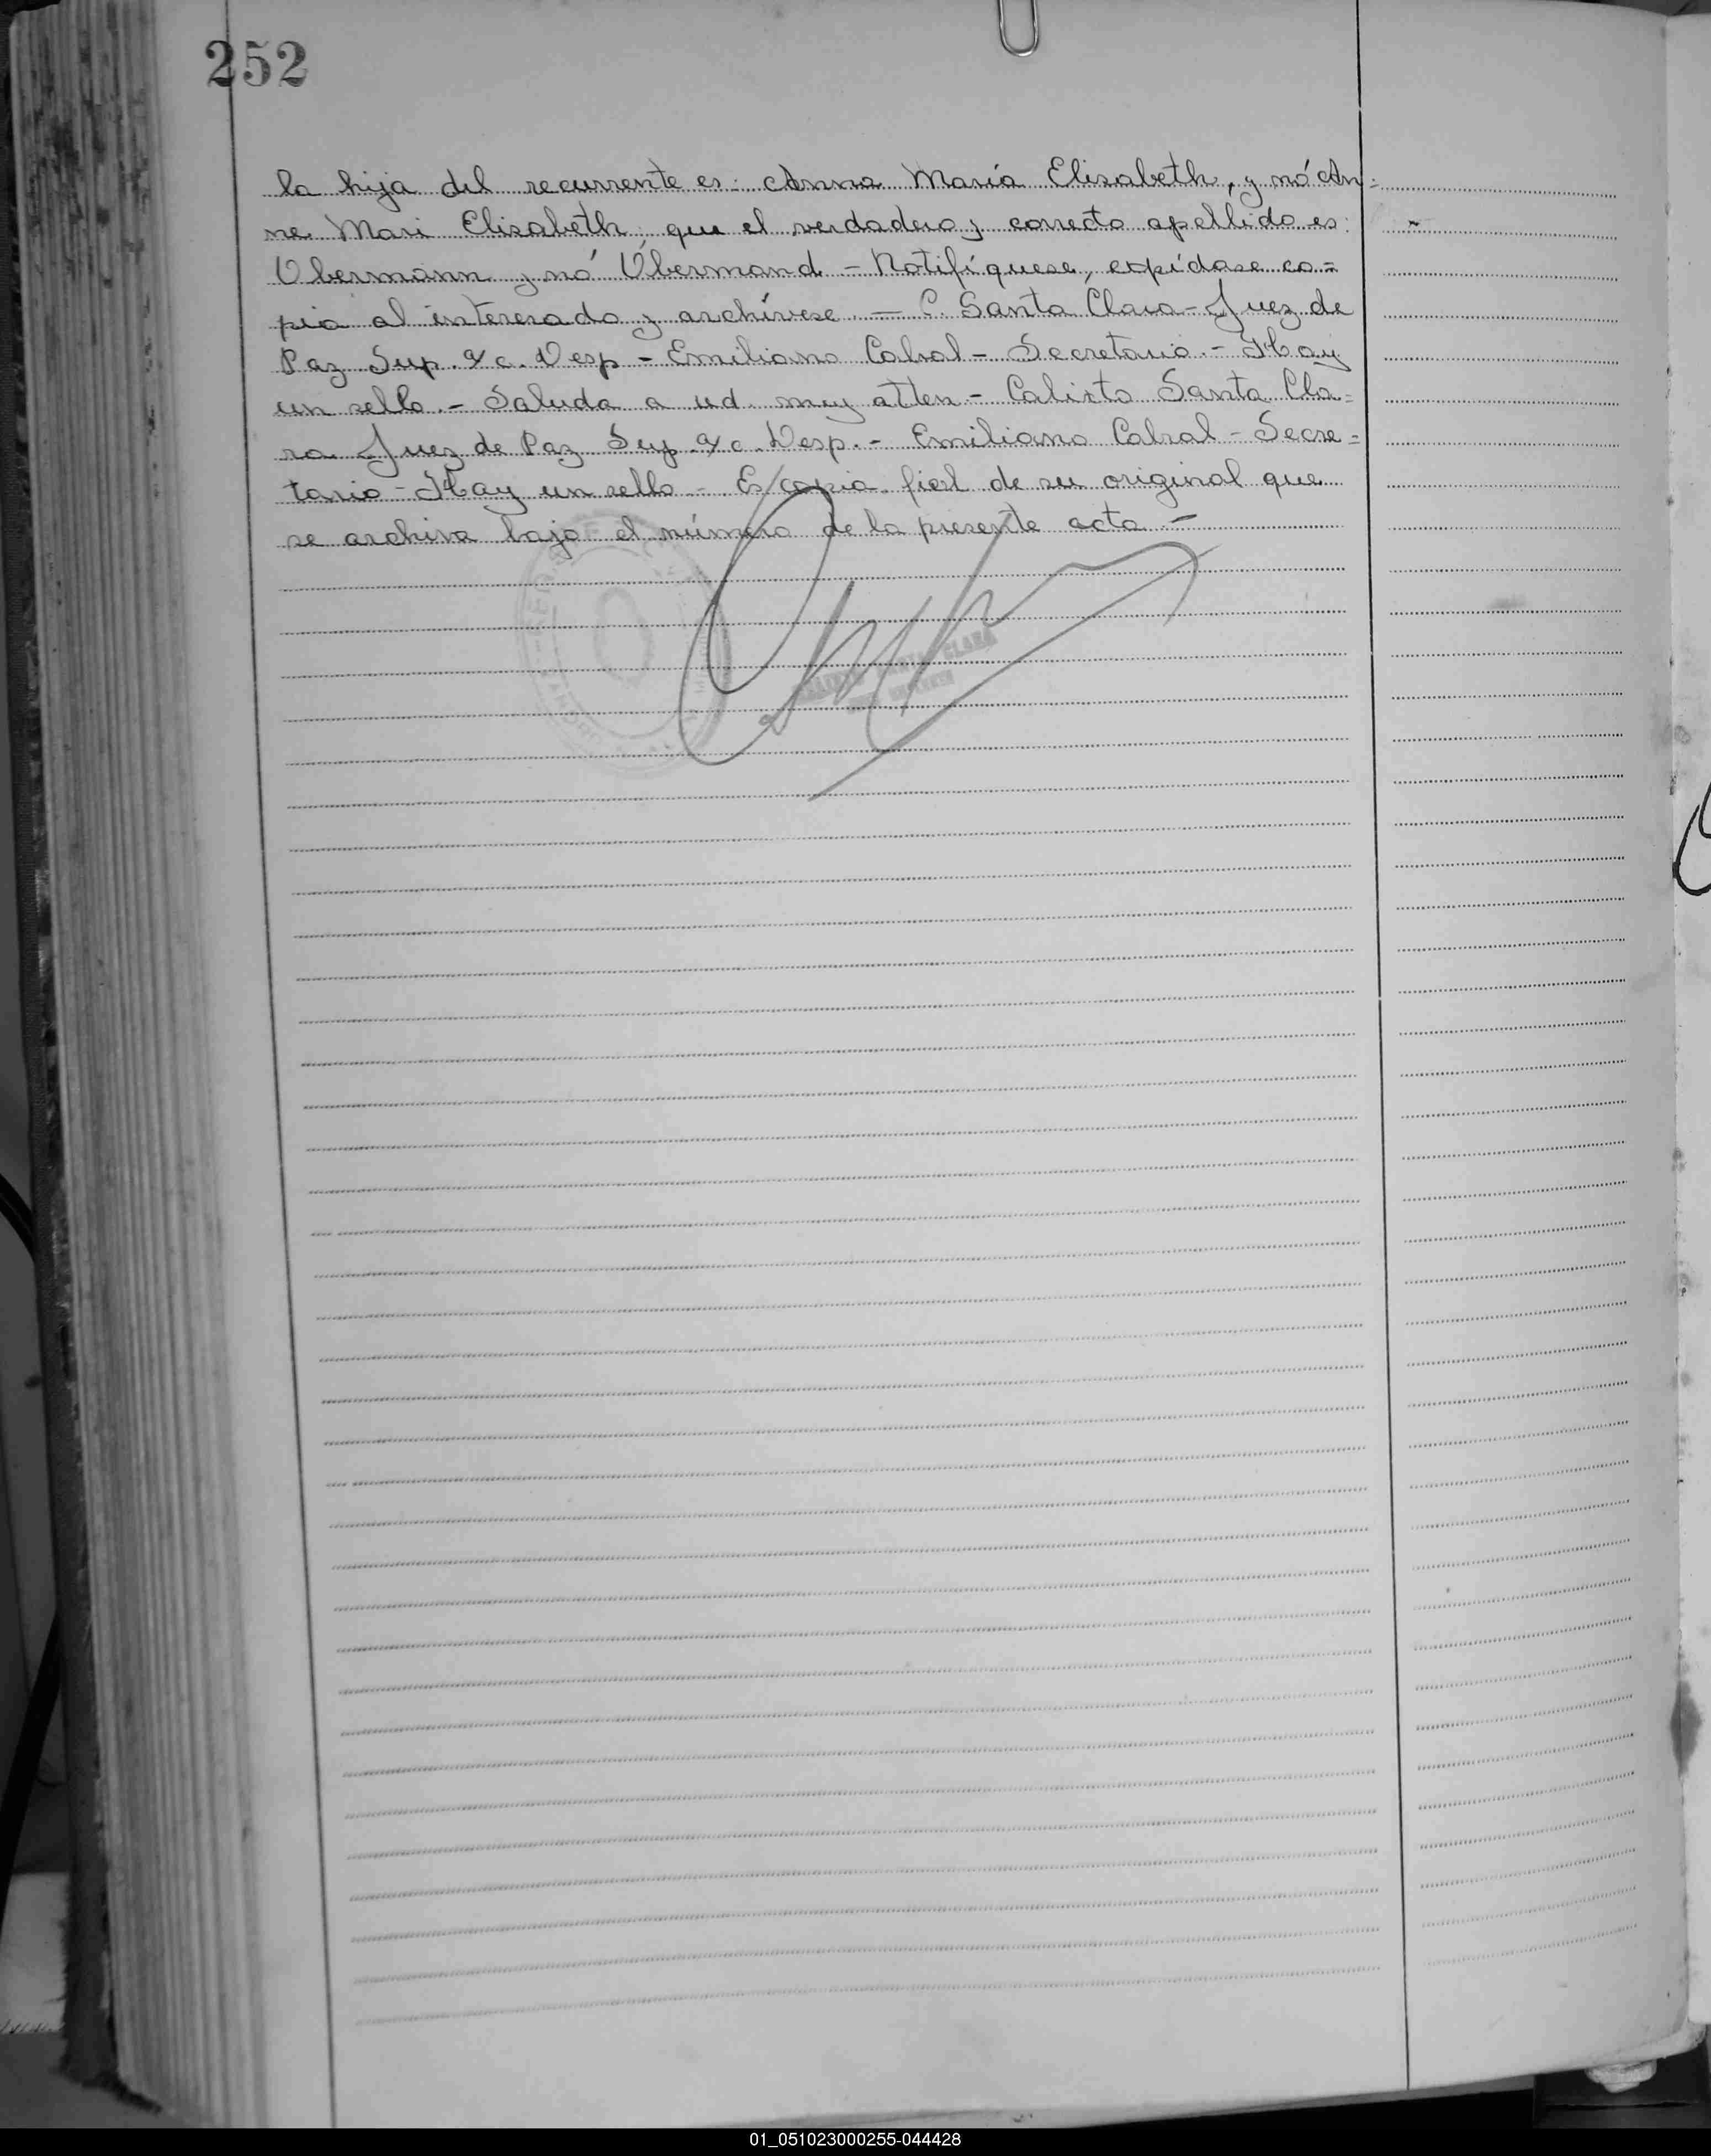 252
la hija del recurrente es: Anna María Elisabeth, y nó An=
ne Mari Elisabeth; que el verdadero y correcto apellido es:
Obermann y nó Óbermand - Notifíquese, expídase co=
pia al interesado y archívese. - C. Santa Clara - Juez de
Paz Sup. a/c. Desp - Emiliano Cabral - Secretario. - Hay
un sello. - Saluda a ud. muy atten - Calixto Santa Cla=
ra Juez de Paz Sup. a/c. Desp. - Emiliano Cabral - Secre=
tario - Hay un sello - Es copia fiel de su original que
se archiva bajo el número de la presente acta. -
SANTA CLARA
01_051023000255-044428